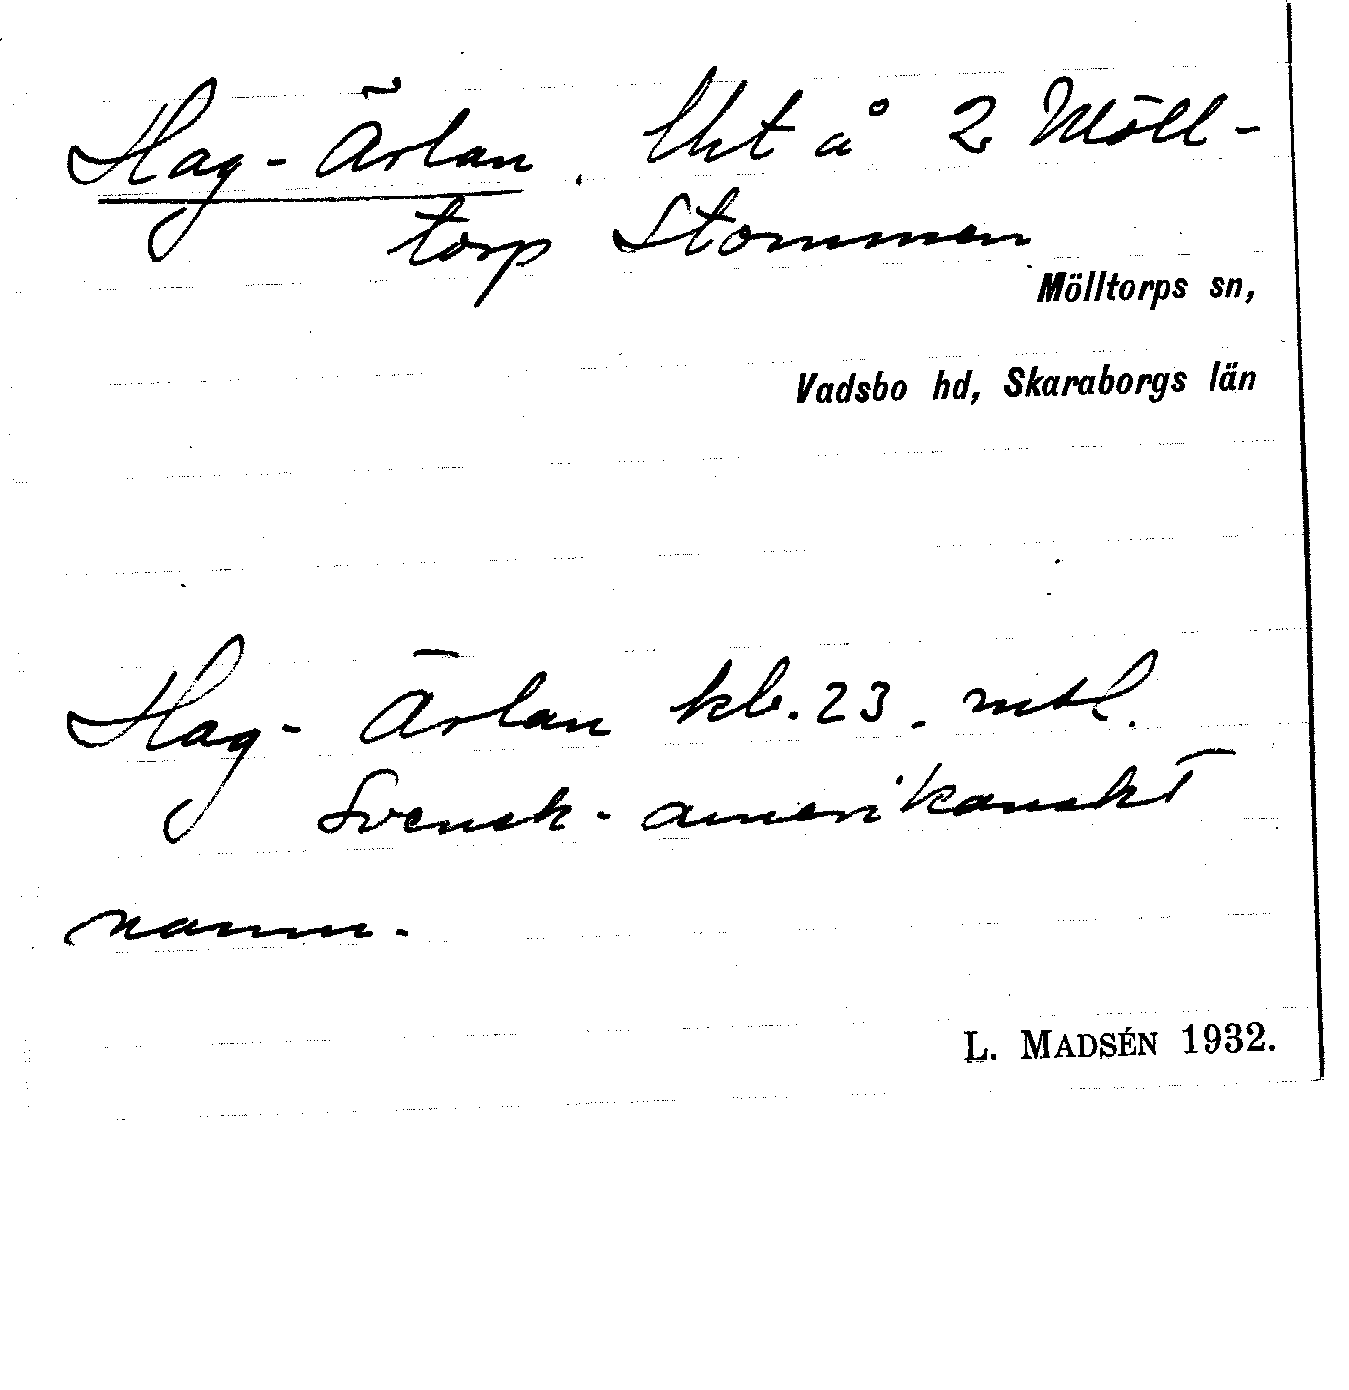 Hag-Ärlan. Lht å 2 Möll-
torp Stommen
Mölltorps sn,
Vadsbo hd, Skaraborgs län
Hag-Ärlan kb. 23. mtl.
Svensk-amerikanskt
namn.
L. MADSÉN 1932.